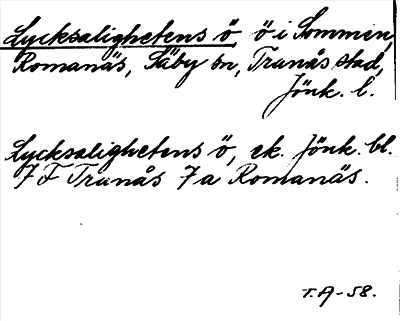 Lycksalighetens ö, ö i Sommen,
Romanäs, Säby sn, Tranås stad,
Jönk. l.
Lycksalighetens ö, ek. Jönk. bl.
7 F Tranås 7 a Romanäs.
T. A-58.